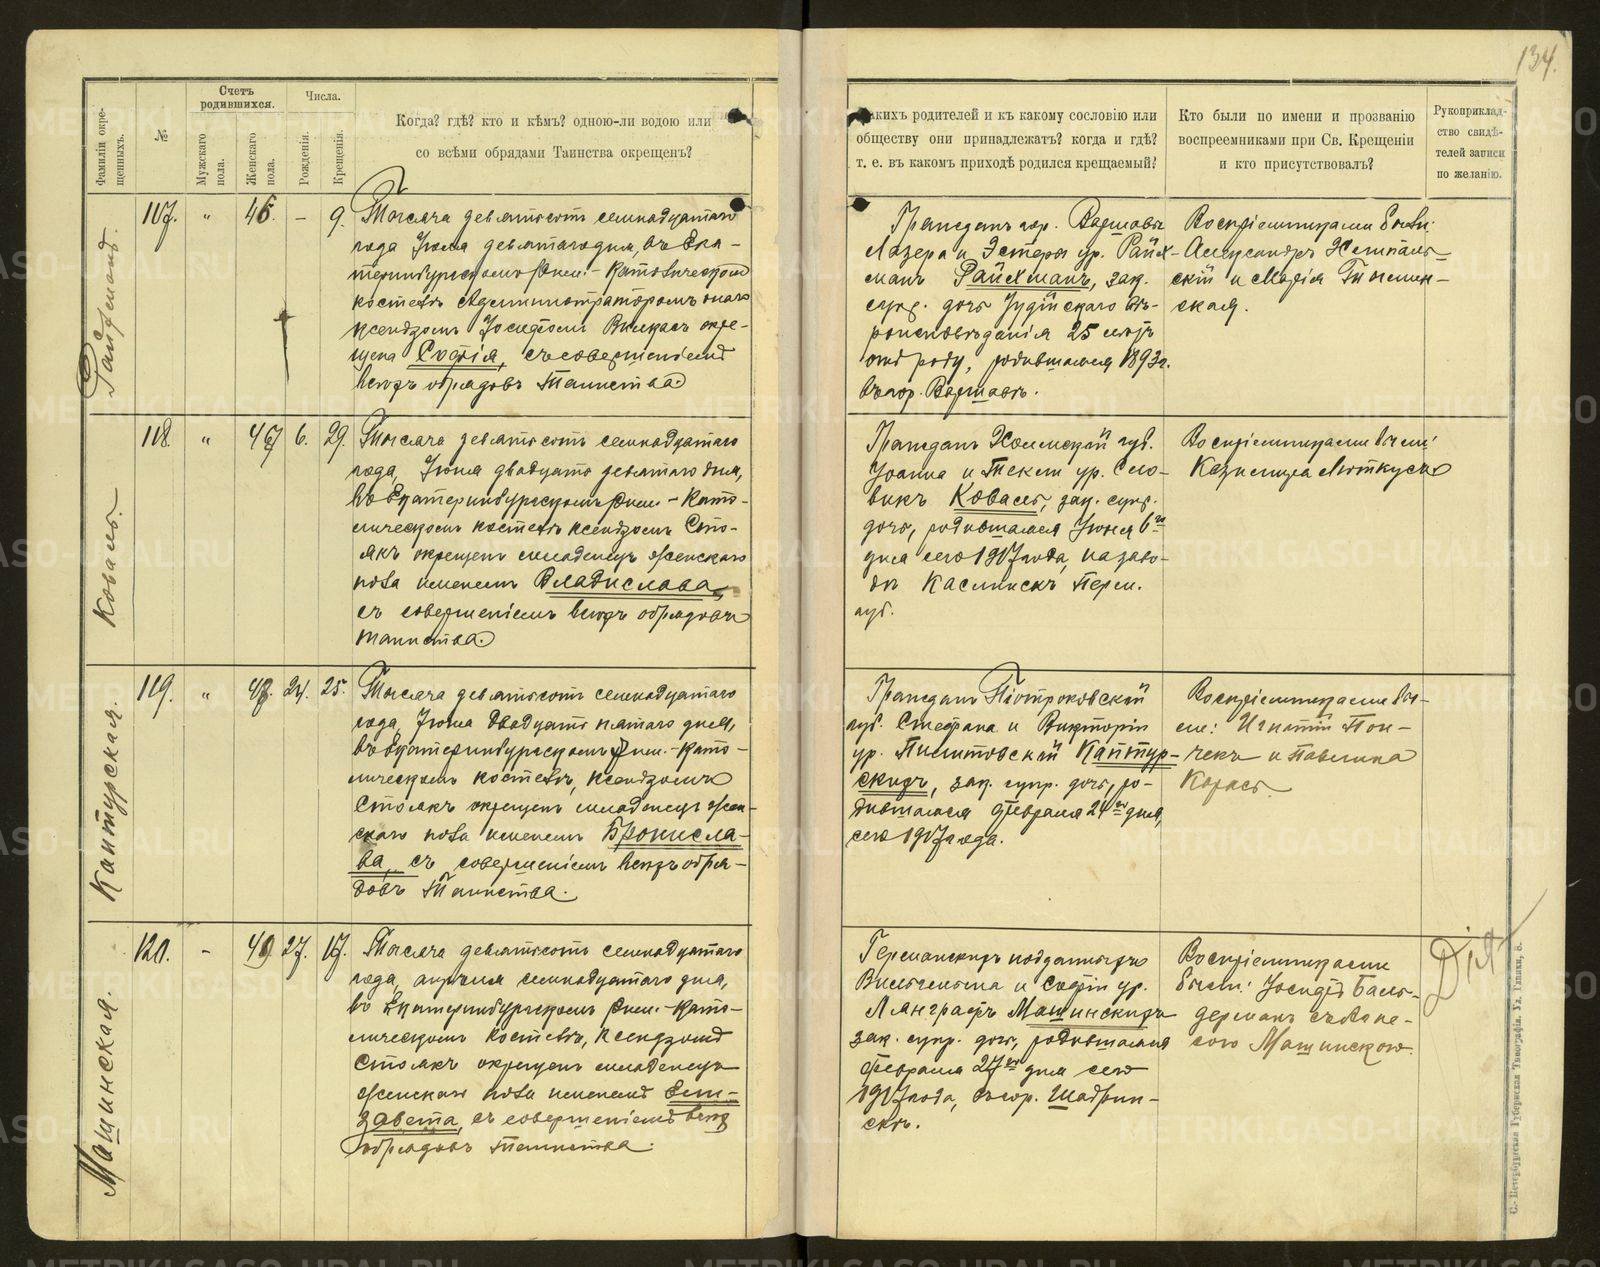 134.
Фамиліи окрещенныхъ.
№
Счетъ родившихся.
Мужскаго пола.
Женскаго пола.
Числа.
Рожденія.
Крещенія.
Когда? гдѣ? кто и кѣмъ? одною-ли водою или
со всѣми обрядами Таинства окрещенъ?
какихъ родителей и къ какому сословію или
обществу они принадлежатъ? когда и гдѣ?
т. е. въ какомъ приходѣ родился крещаемый?
Кто были по имени и прозванію
воспреемниками при Св. Крещеніи
и кто присутствовалъ?
Рукоприклад-
ство свидѣ-
телей записи
по желанію.
107. " 46. – 9.
Тысяча девятьсотъ семнадцатаго
года Іюля девятаго дня, въ Ека-
теринбургскомъ Римс.-Католическомъ
костелѣ Администраторомъ онаго
ксендзомъ Іосифомъ окре-
щена Софія, съ совершеніемъ
всѣхъ обрядовъ Таинства.
Гражданъ гор. Варшавы
Лазера и Эстеры ур. Райх-
манъ Райхманъ, зак.
супр. дочь Іудейскаго вѣ-
роисповѣданія 25 лѣтъ
отъ роду, родившаяся 1893 г.
въ гор. Варшавѣ.
Воспріемниками были:
Александръ
скій и Марія
ская.
Коваль.
118. " 47 6. 29.
Тысяча девятьсотъ семнадцатаго
года, Іюля двадцать девятаго дня,
въ Екатеринбургскомъ Римс.-Като-
лическомъ костелѣ ксендзомъ Сто-
лякъ окрещенъ младенецъ женскаго
пола именемъ Владислава,
съ совершеніемъ всѣхъ обрядовъ
таинства.
Гражданъ Холмской губ.
Іоанна и Теклы ур. Сло-
викъ Коваль, зак. супр.
дочь, родившаяся Іюня 6го
дня сего 1917 года, на заво-
дѣ Каслинскъ Перм.
губ.
Воспріемниками были:
Казимира Мюткусъ
Каптурская.
119. " 48. 24. 25.
Тысяча девятьсотъ семнадцатаго
года, Іюля двадцать пятаго дня,
въ Екатеринбургскомъ Римс.-Като-
лическомъ костелѣ, ксендзомъ
Столякъ окрещенъ младенецъ жен-
скаго пола именемъ Бронисла-
ва, съ совершеніемъ всѣхъ обря-
довъ Таинства.
Гражданъ Піотроковской
губ. Стефана и Викторіи
ур. Каптур-
скихъ, зак. супр. дочь, ро-
дившаяся Февраля 24го дня,
сего 1917 года.
Воспріемниками бы-
ли: Игнатій Пон-
чекъ и Павлина
Карась.
Машинская.
120. – 49 27. 17.
Тысяча девятьсотъ семнадцатаго
года, апрѣля семнадцатаго дня,
въ Екатеринбургскомъ Римс.-Като-
лическомъ костелѣ, ксендзомъ
Столякъ окрещенъ младенецъ
женскаго пола именемъ Ели-
завета, съ совершеніемъ всѣхъ
обрядовъ Таинства.
Германскихъ подданныхъ
Вильгельма и Софіи ур.
Лянграфъ Машинскихъ
зак. супр. дочь, родившаяся
Февраля 27го дня сего
1917 года, въ гор. Шадрин-
скѣ.
Воспріемниками
были: Іосифъ Баль-
дерманъ съ
Машинскою.
С.-Петербургская Губернская Типографія.
METRIKI.GASO-URAL.RU